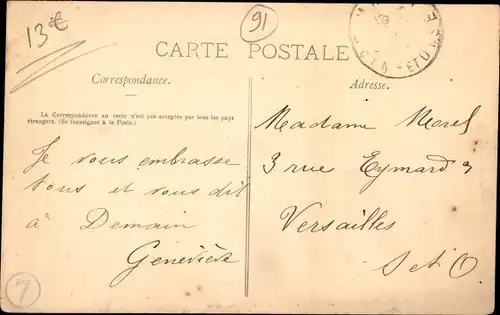 13€
91
CARTE POSTALE
Correspondance.
La Correspondance au recto n'est pas acceptée par tous les pays
étrangers. (Se renseigner à la Poste.)
Je vous embrasse
tous et vous dit
à Demain
Geneviève
Adresse.
Madame Morel
3 rue Eymard
Versailles
S et O
ET OISE
7